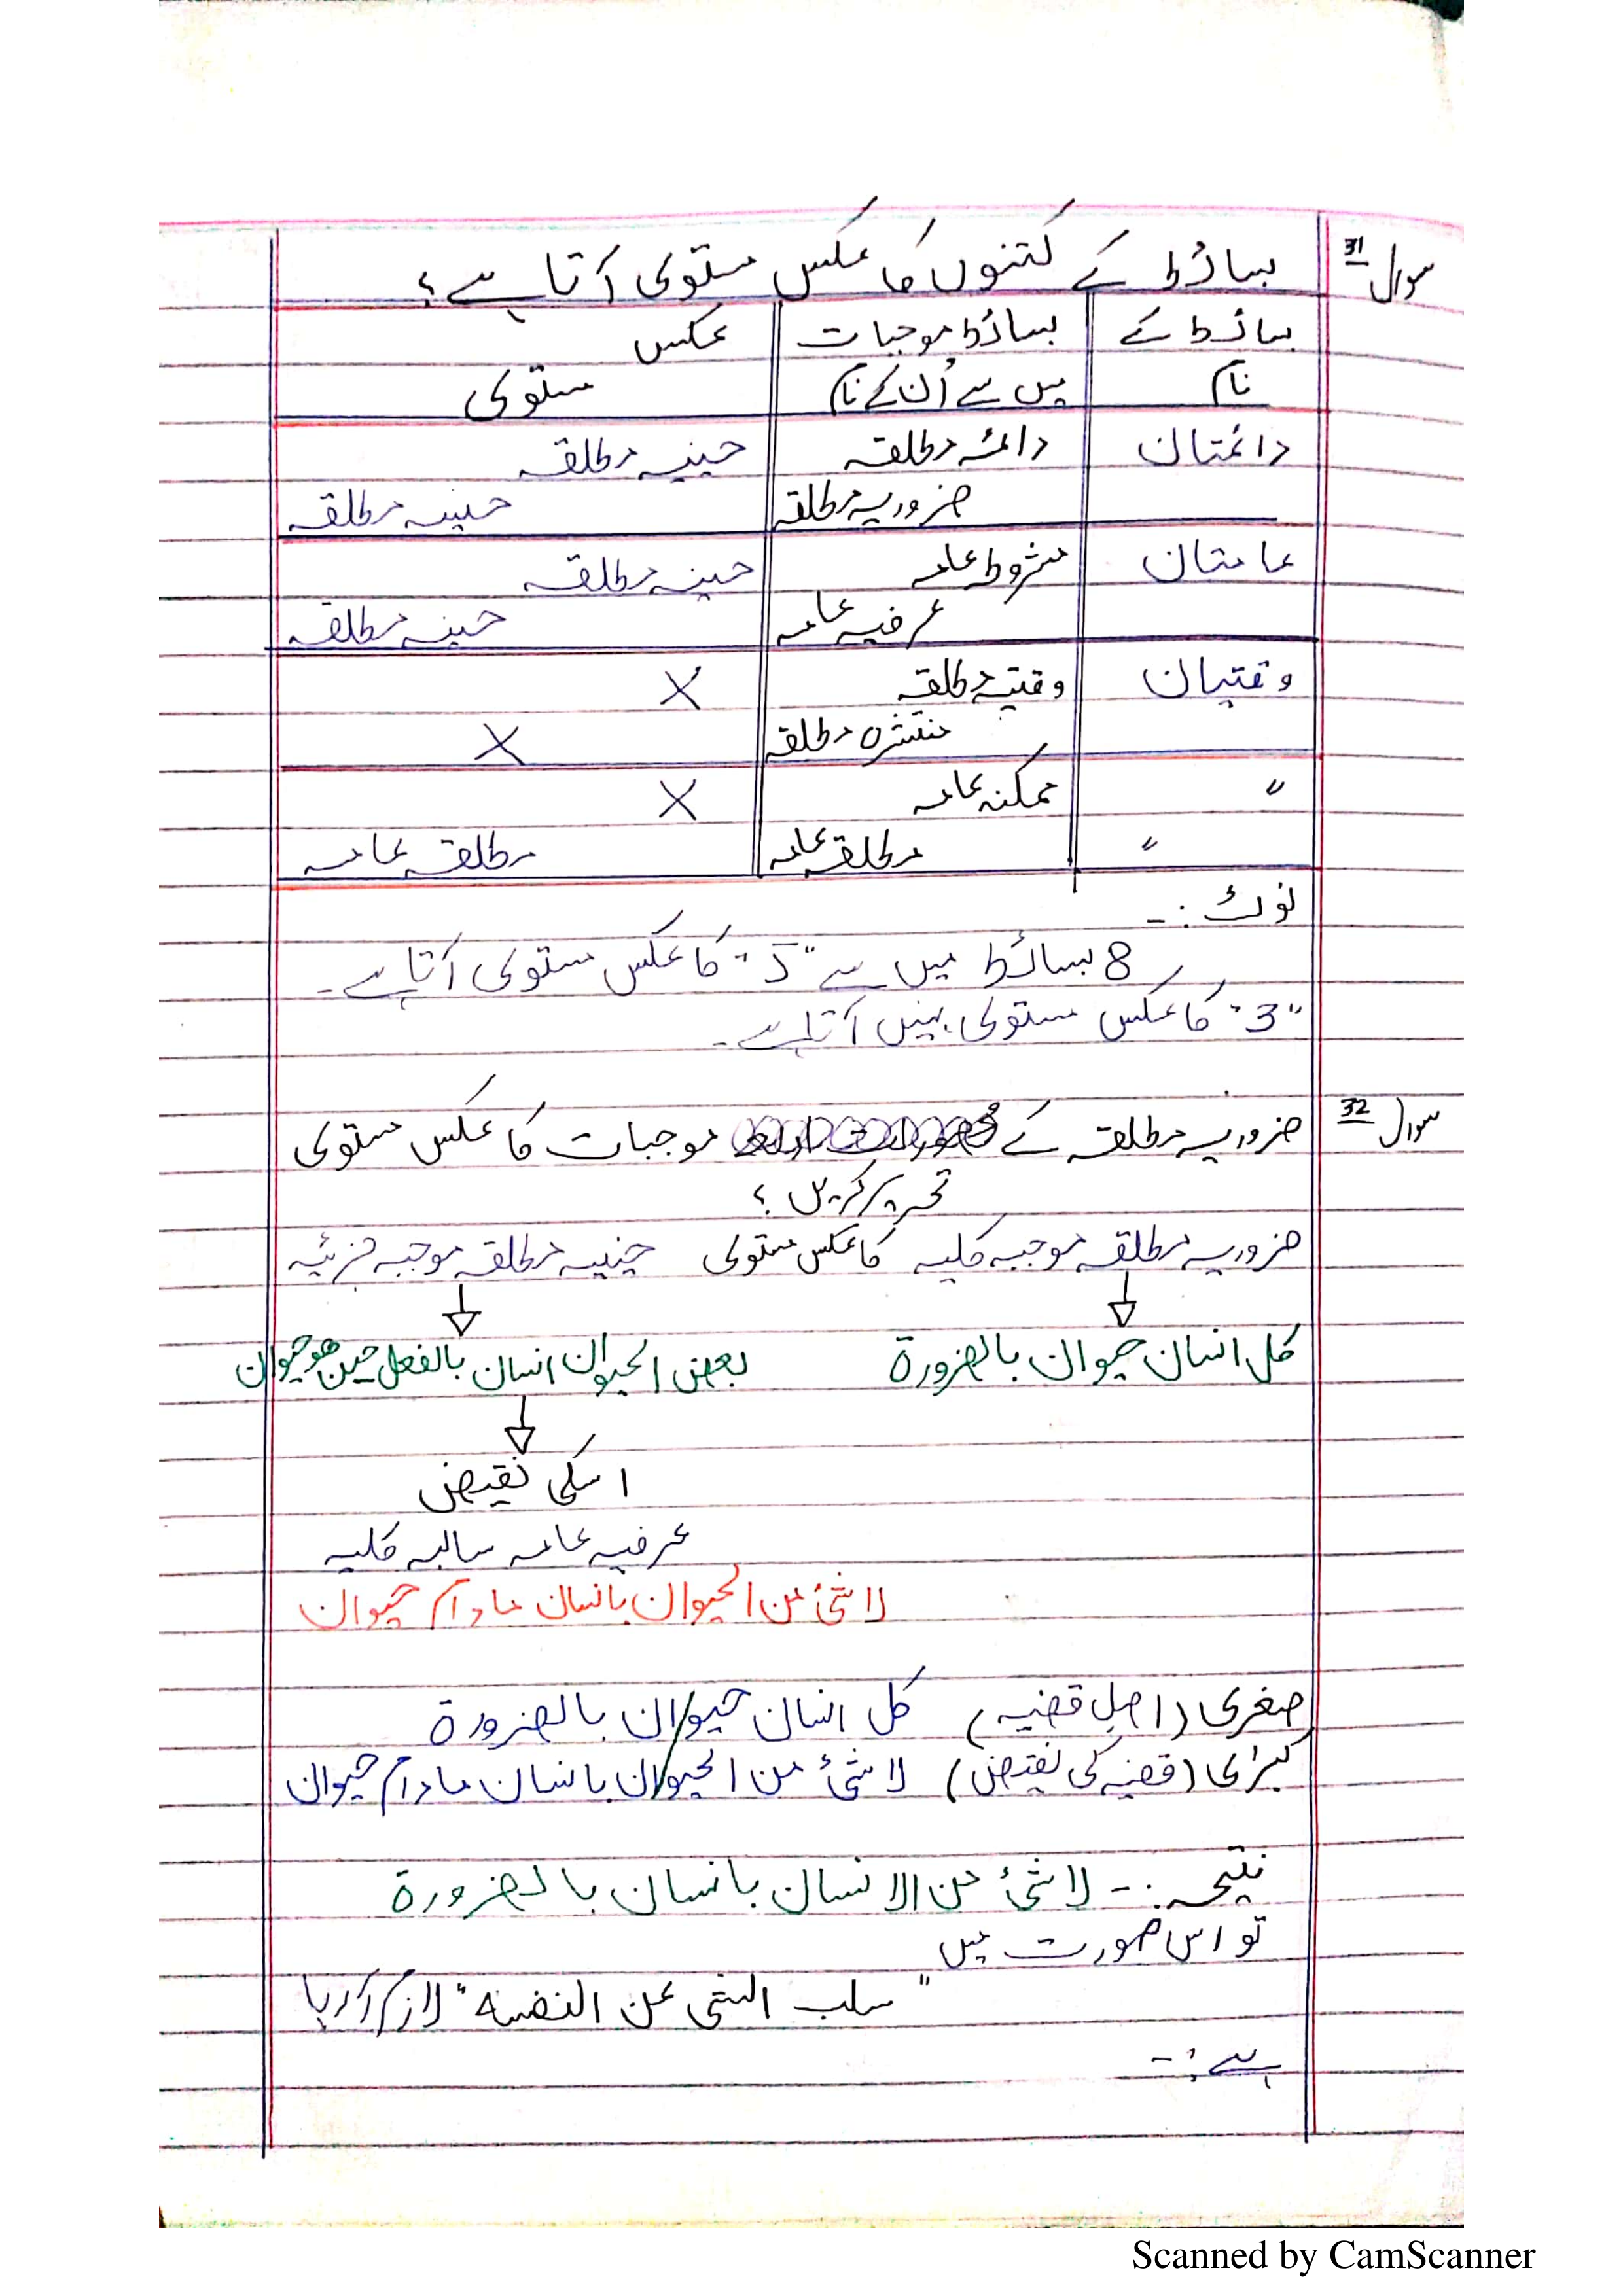 سوال 31 بسائط کے کتنوں کا عکس مستوی آتا ہے؟
بسائط کے بسائط موجبات عکس
نام میں سے اُن کے نام مستوی
دائمتان دائمہ مطلقہ حینیہ مطلقہ
ضروریہ مطلقہ حینیہ مطلقہ
عامتان مشروطہ عامہ حینیہ مطلقہ
عرفیہ عامہ حینیہ مطلقہ
وقتیان وقتیہ مطلقہ X
منتشرہ مطلقہ X
" ممکنہ عامہ X
" مطلقہ عامہ مطلقہ عامہ
نوٹ :-
8 بسائط میں سے "5" کا عکس مستوی آتا ہے۔
"3" کا عکس مستوی نہیں آتا ہے۔
سوال 32 ضروریہ مطلقہ کے موجبات کا عکس مستوی
تحریر کریں؟
ضروریہ مطلقہ موجبہ کلیہ کا عکس مستوی حینیہ مطلقہ موجبہ جزئیہ
کل انسان حیوان بالضرورۃ بعض الحیوان انسان بالفعل حین ھو حیوان
اسکی نقیض
عرفیہ عامہ سالبہ کلیہ
لا شئ من الحیوان بانسان مادام حیوان
صغری (اصل قضیہ) کل انسان حیوان بالضرورۃ
کبرٰی (قضیہ کی نقیض) لا شئ من الحیوان بانسان مادام حیوان
نتیجہ :- لا شئ من الانسان بانسان بالضرورۃ
تو اس صورت میں
"سلب الشی عن النفسہ" لازم آ رہا
ہے :-
Scanned by CamScanner